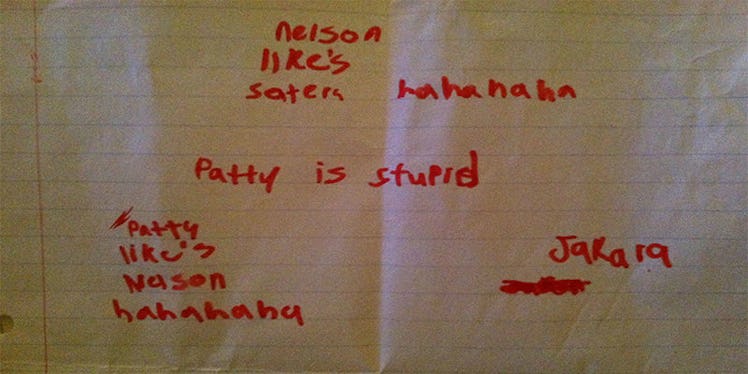 nelson
like's
saters hahahaha
Patty is stupid
Patty
like's
Nason
hahahaha
Jakara